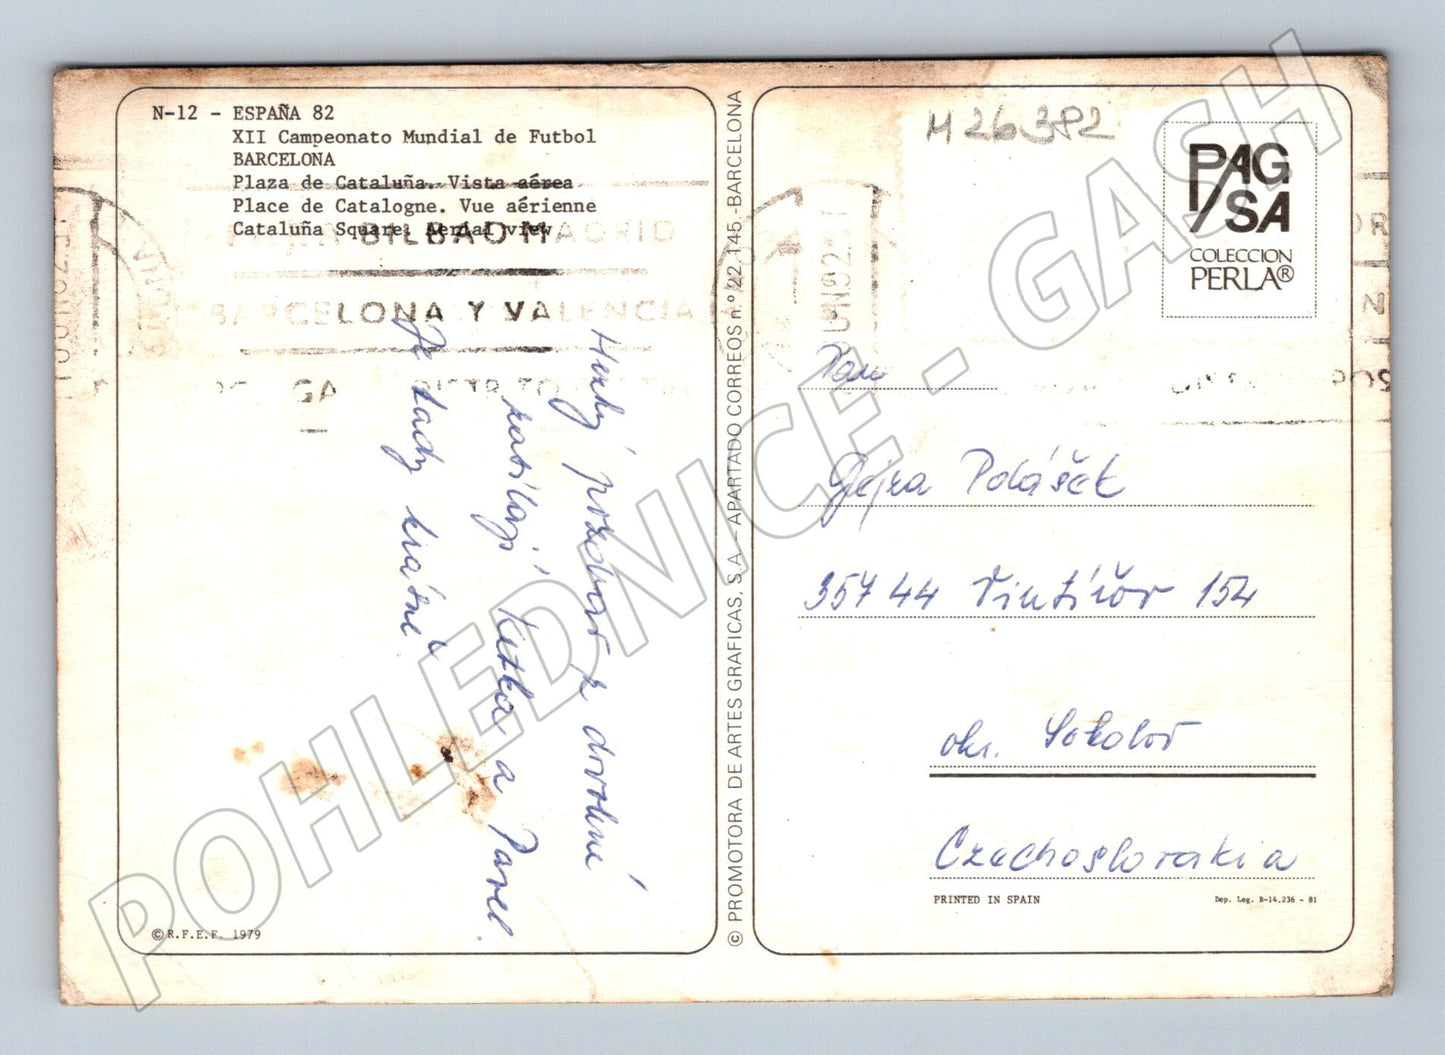 N-12 - ESPAÑA 82
XII Campeonato Mundial de Futbol
BARCELONA
Plaza de Cataluña. Vista aérea
Place de Catalogne. Vue aérienne
Cataluña Square. Aerial view
BILBAO MADRID
BARCELONA Y VALENCIA
Hezký pozdrav z dovolené
zasílají Katka a Pavel.
Je tady krásně
© R.F.E.F. 1979
© PROMOTORA DE ARTES GRAFICAS, S.A. - APARTADO CORREOS n.º 22.145.-BARCELONA
M 26382
PAG
SA
COLECCION
PERLA®
Pan
Gejza Polášek
357 44 Vintířov 154
okr. Sokolov
Czechoslovakia
PRINTED IN SPAIN
Dep. Leg. B-14.236 - 81
POHLEDNICE - GASH